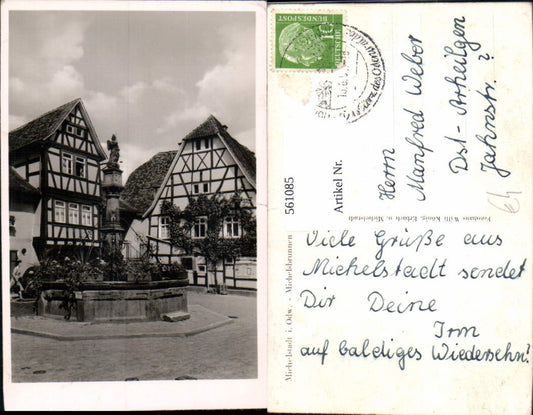 DEUTSCHE
BUNDESPOST
10
Herrn
Manfred Weber
Dst-Arheilgen
Jahnstr. ?
561085
Artikel Nr.
Michelstadt i. Odw. - Michelsbrunnen
Viele Grüße aus
Michelstadt sendet
Dir Deine
Irm
auf baldiges Wiedersehn!